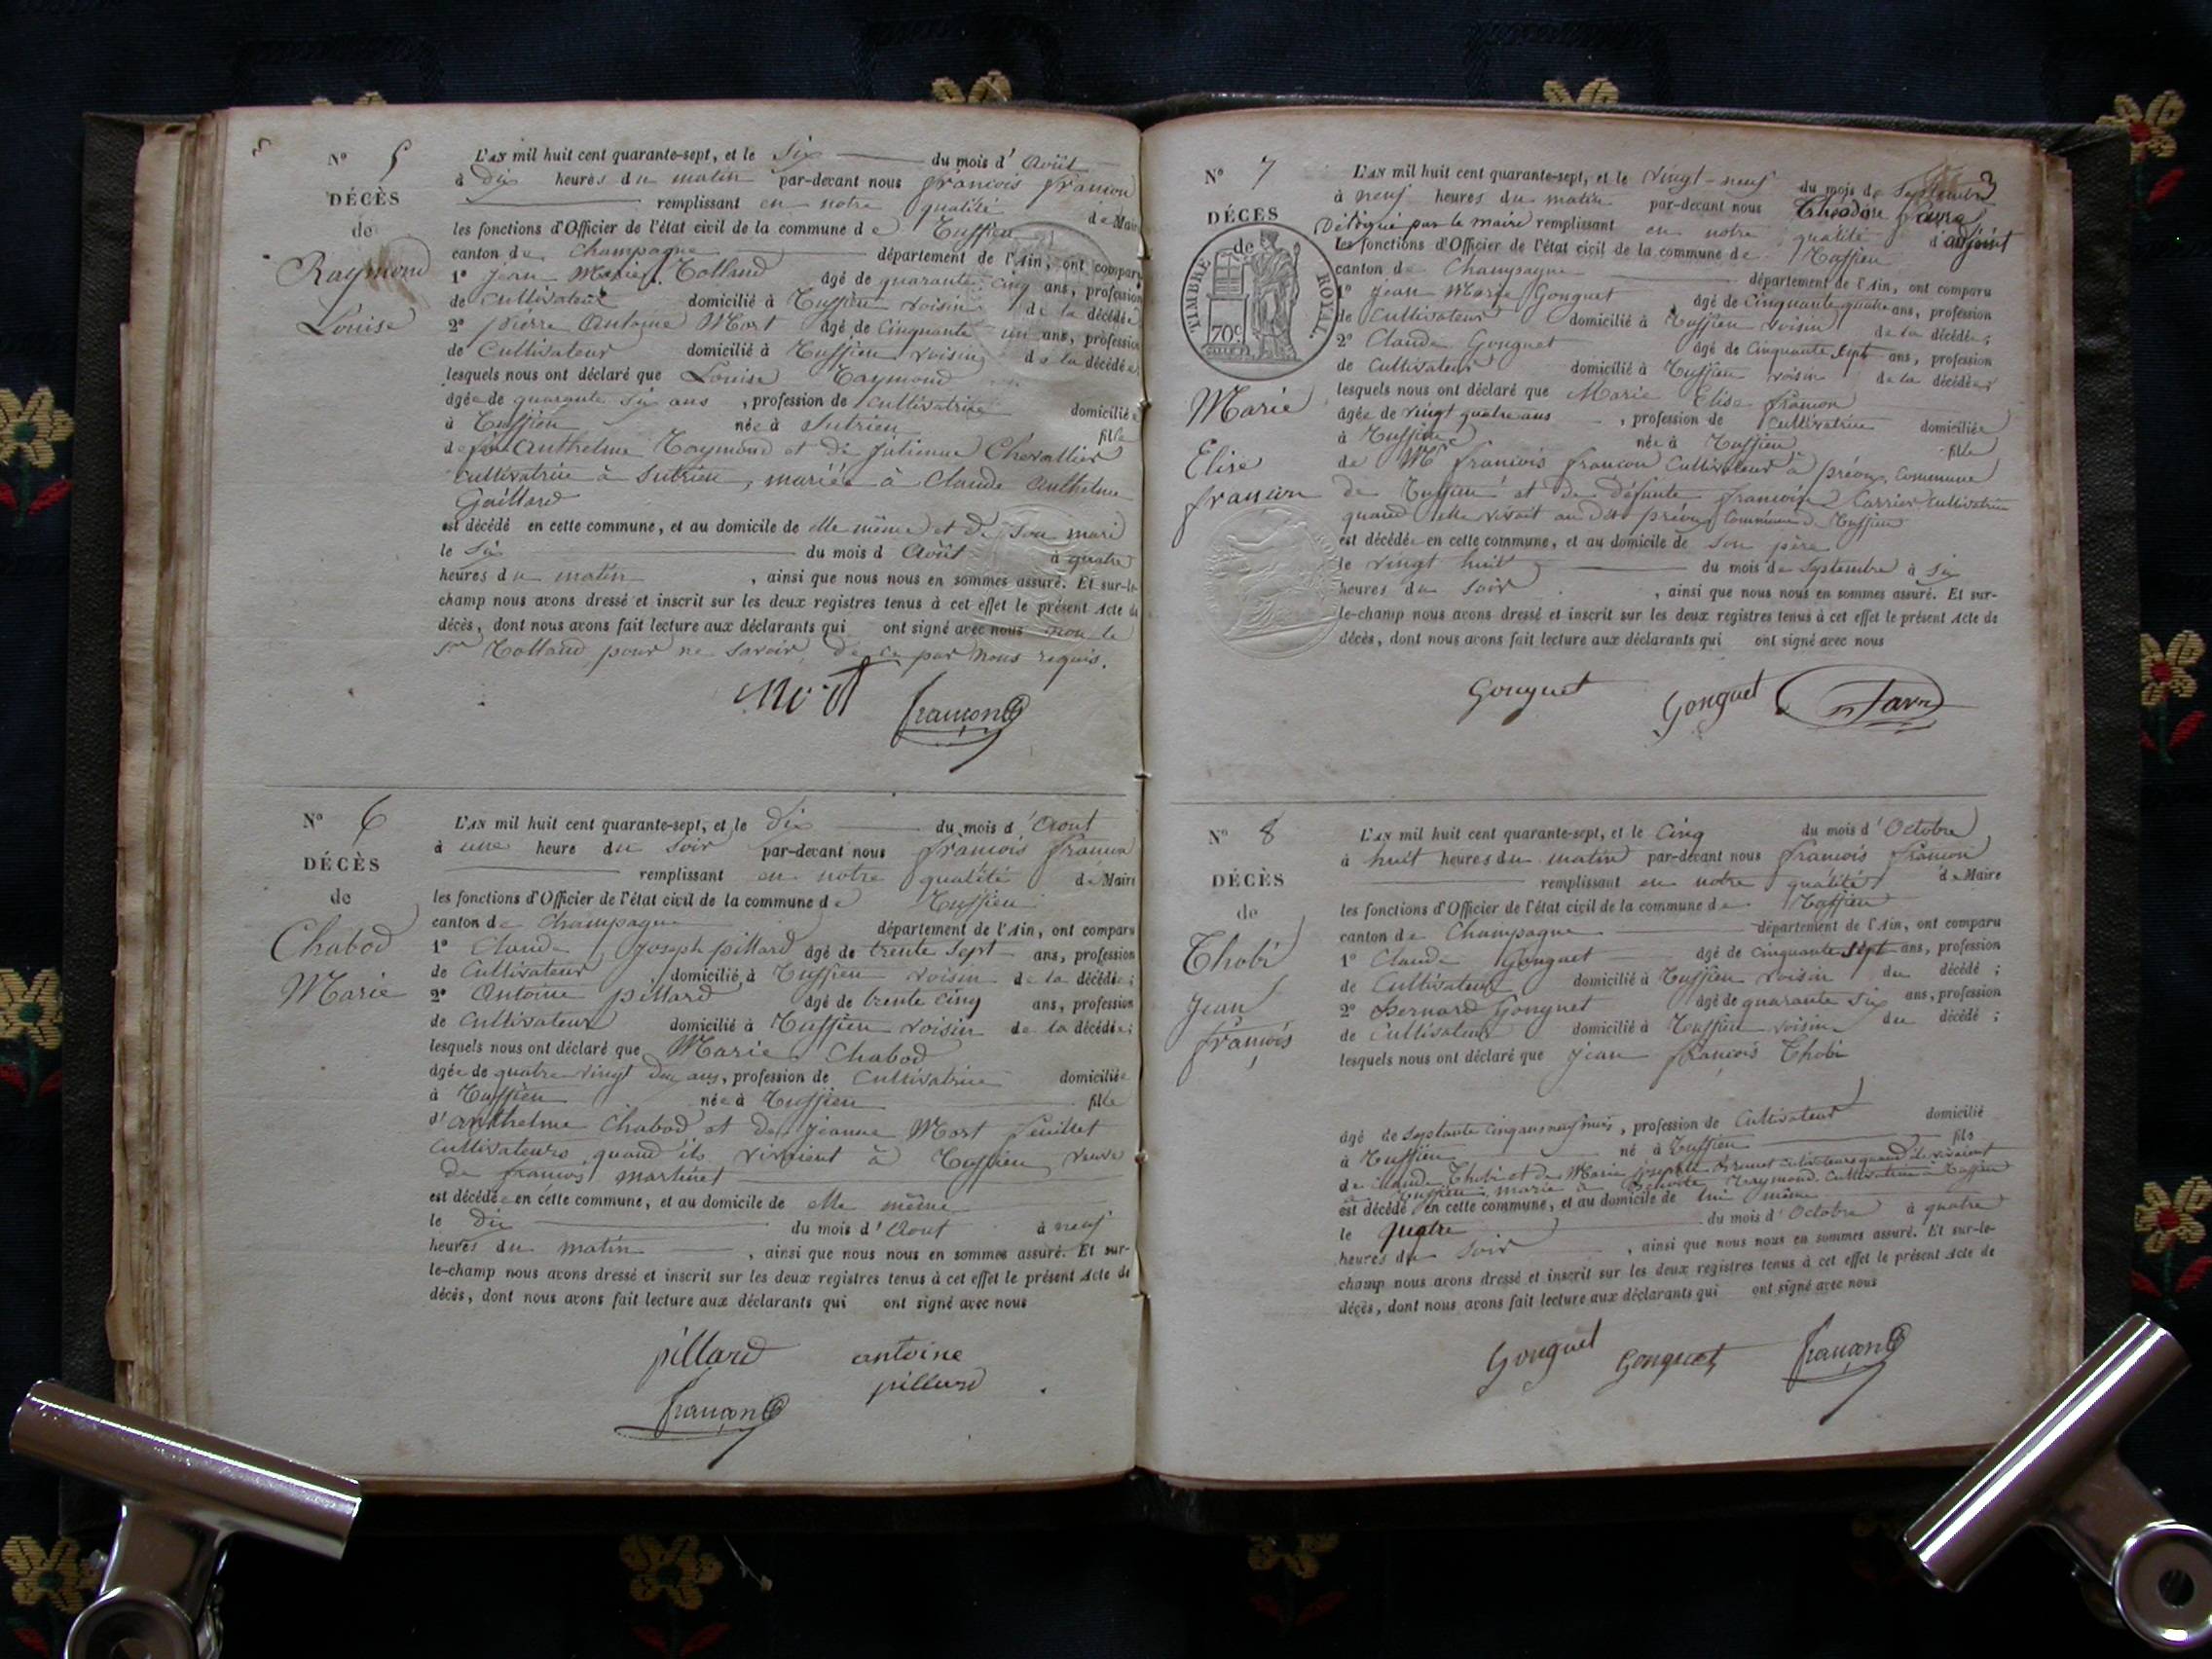 N° 5
DÉCÈS
de
Raymond
Louise
L'AN mil huit cent quarante-sept, et le Six du mois d' Août
à dix heures du matin par-devant nous françois françon
remplissant en notre qualité de Maire
les fonctions d'Officier de l'état civil de la commune de Ruffieu
canton de Champagne département de l'Ain, ont comparu
1° jean Marie Rolland âgé de quarante cinq ans, profession
de Cultivateur domicilié à Ruffieu voisin de la décédée
2° pierre Antoine Mort âgé de Cinquante un ans, profession
de Cultivateur domicilié à Ruffieu voisin de la décédée
lesquels nous ont déclaré que Louise Raymond
âgée de quarante Six ans, profession de Cultivatrice domiciliée
à Ruffieu née à Sutrieu fille
de feu Anthelme Raymond et de julienne Chevallier
Cultivatrice à Sutrieu, mariée à Claude Anthelme
Gaillard
est décédé en cette commune, et au domicile de elle même et de son mari
le Six du mois d Août à quatre
heures du matin, ainsi que nous nous en sommes assuré. Et sur-le-
champ nous avons dressé et inscrit sur les deux registres tenus à cet effet le présent Acte de
décès, dont nous avons fait lecture aux déclarants qui ont signé avec nous non le
Sr Rolland pour ne savoir, de ce par nous requis.
Mort françon
N° 6
DÉCÈS
de
Chabod
Marie
L'AN mil huit cent quarante-sept, et le dix du mois d' Aout
à une heure du soir par-devant nous françois françon
remplissant en notre qualité de Maire
les fonctions d'Officier de l'état civil de la commune de Ruffieu
canton de Champagne département de l'Ain, ont comparu
1° Claude joseph pillard âgé de trente Sept ans, profession
de Cultivateur domicilié à Ruffieu voisin de la décédée;
2° Antoine pillard âgé de trente cinq ans, profession
de Cultivateur domicilié à Ruffieu voisin de la décédée;
lesquels nous ont déclaré que Marie Chabod
âgée de quatre vingt dix ans, profession de Cultivatrice domiciliée
à Ruffieu née à Ruffieu fille
d'anthelme Chabod et de jeanne Mort feuillet
Cultivateurs quand ils vivoient à Ruffieu veuve
de françois martinet
est décédée en cette commune, et au domicile de elle même
le dix du mois d' Aout à neuf
heures du matin, ainsi que nous nous en sommes assuré. Et sur-
le-champ nous avons dressé et inscrit sur les deux registres tenus à cet effet le présent Acte de
décès, dont nous avons fait lecture aux déclarants qui ont signé avec nous
pillard antoine
pillard
françon
3
N° 7
DÉCÈS
de
TIMBRE ROYAL.
70c
Marie
Elise
françon
L'AN mil huit cent quarante-sept, et le vingt-neuf du mois de Septembre
à neuf heures du matin par-devant nous Théodore favre
Délégué par le maire remplissant en notre qualité d'adjoint
les fonctions d'Officier de l'état civil de la commune de Ruffieu
canton de Champagne département de l'Ain, ont comparu
1° jean Marie Gonguet âgé de Cinquante quatre ans, profession
de Cultivateur domicilié à Ruffieu voisin de la décédée;
2° Claude Gonguet âgé de Cinquante Sept ans, profession
de Cultivateur domicilié à Ruffieu voisin de la décédée
lesquels nous ont déclaré que Marie Elise françon
âgée de vingt quatre ans, profession de Cultivatrice domiciliée
à Ruffieu née à Ruffieu fille
de Mr françois françon Cultivateur à prévou, Commune
de Ruffieu et de défunte françoise Carrier Cultivatrice
quand elle vivoit au dit prévou Commune de Ruffieu
est décédée en cette commune, et au domicile de son père
le vingt huit du mois de Septembre à six
heures du soir, ainsi que nous nous en sommes assuré. Et sur-
le-champ nous avons dressé et inscrit sur les deux registres tenus à cet effet le présent Acte de
décès, dont nous avons fait lecture aux déclarants qui ont signé avec nous
Gonguet Gonguet favre
N° 8
DÉCÈS
de
Thobi
jean
françois
L'AN mil huit cent quarante-sept, et le Cinq du mois d' Octobre
à huit heures du matin par-devant nous françois françon
remplissant en notre qualité de Maire
les fonctions d'Officier de l'état civil de la commune de Ruffieu
canton de Champagne département de l'Ain, ont comparu
1° Claude Gonguet âgé de cinquante Sept ans, profession
de Cultivateur domicilié à Ruffieu voisin du décédé;
2° Bernard Gonguet âgé de quarante Six ans, profession
de Cultivateur domicilié à Ruffieu voisin du décédé;
lesquels nous ont déclaré que jean françois Thobi
âgé de Septante cinq ans neuf mois, profession de Cultivateur domicilié
à Ruffieu né à Ruffieu fils
de Claude Thobi et de Marie josephte Brunet cultivateurs quand ils vivoient
à Ruffieu, marié à Benoite Raymond Cultivatrice à Ruffieu
est décédé en cette commune, et au domicile de lui même
le quatre du mois d' Octobre à quatre
heures du soir, ainsi que nous nous en sommes assuré. Et sur-le-
champ nous avons dressé et inscrit sur les deux registres tenus à cet effet le présent Acte de
décès, dont nous avons fait lecture aux déclarants qui ont signé avec nous
Gonguet Gonguet françon